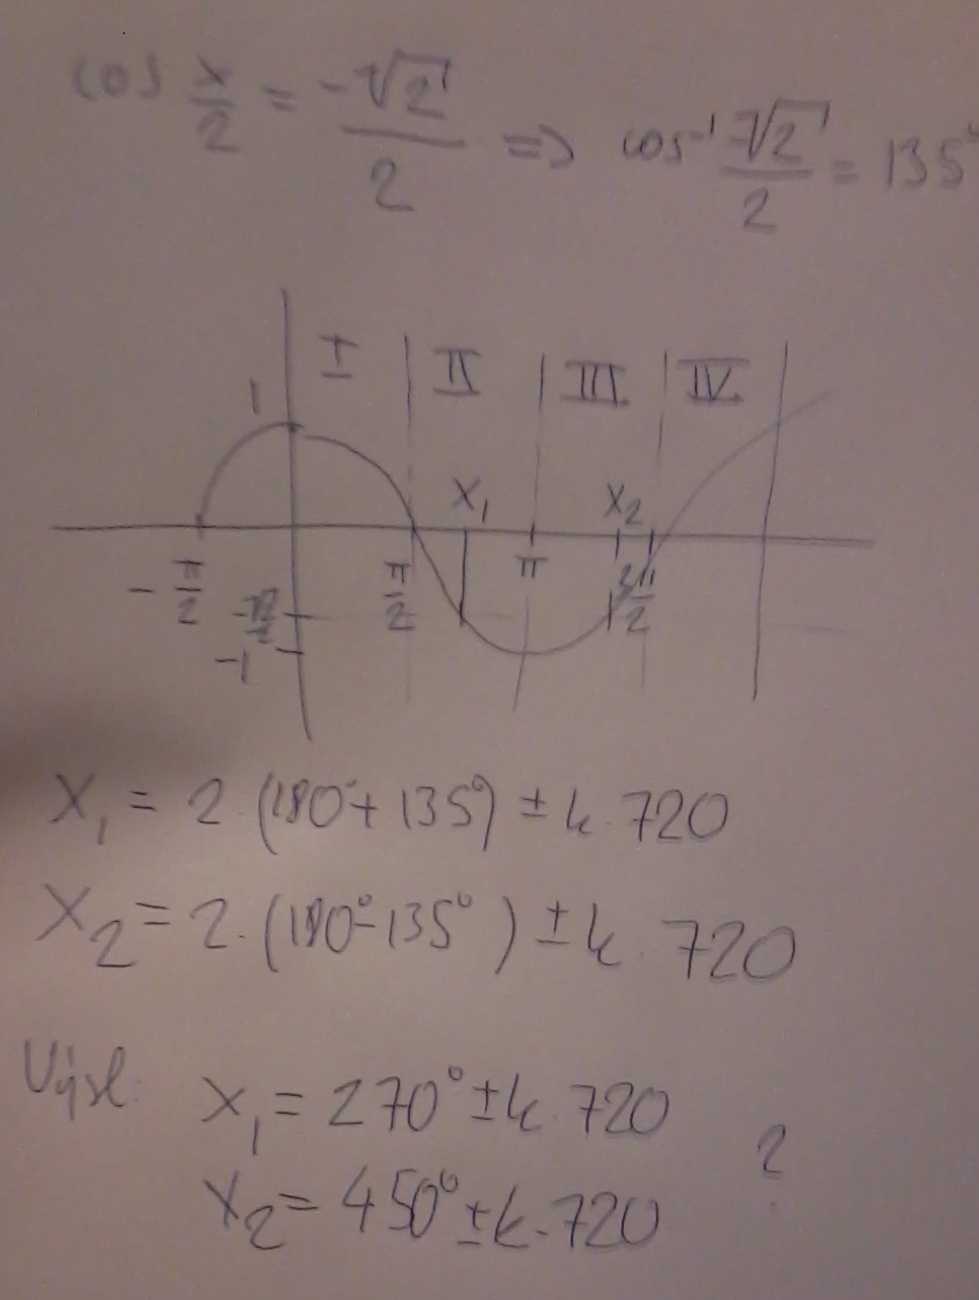 cos x/2 = -√2/2 => cos⁻¹ -√2/2 = 135°
I II III IV
1
x₁ x₂
-π/2 π/2 π 3π/2
-√2/2
-1
x₁ = 2.(180°+135°) ± k.720
x₂ = 2.(180°-135°) ± k.720
Výsl: x₁ = 270° ± k.720
?
x₂ = 450° ± k.720